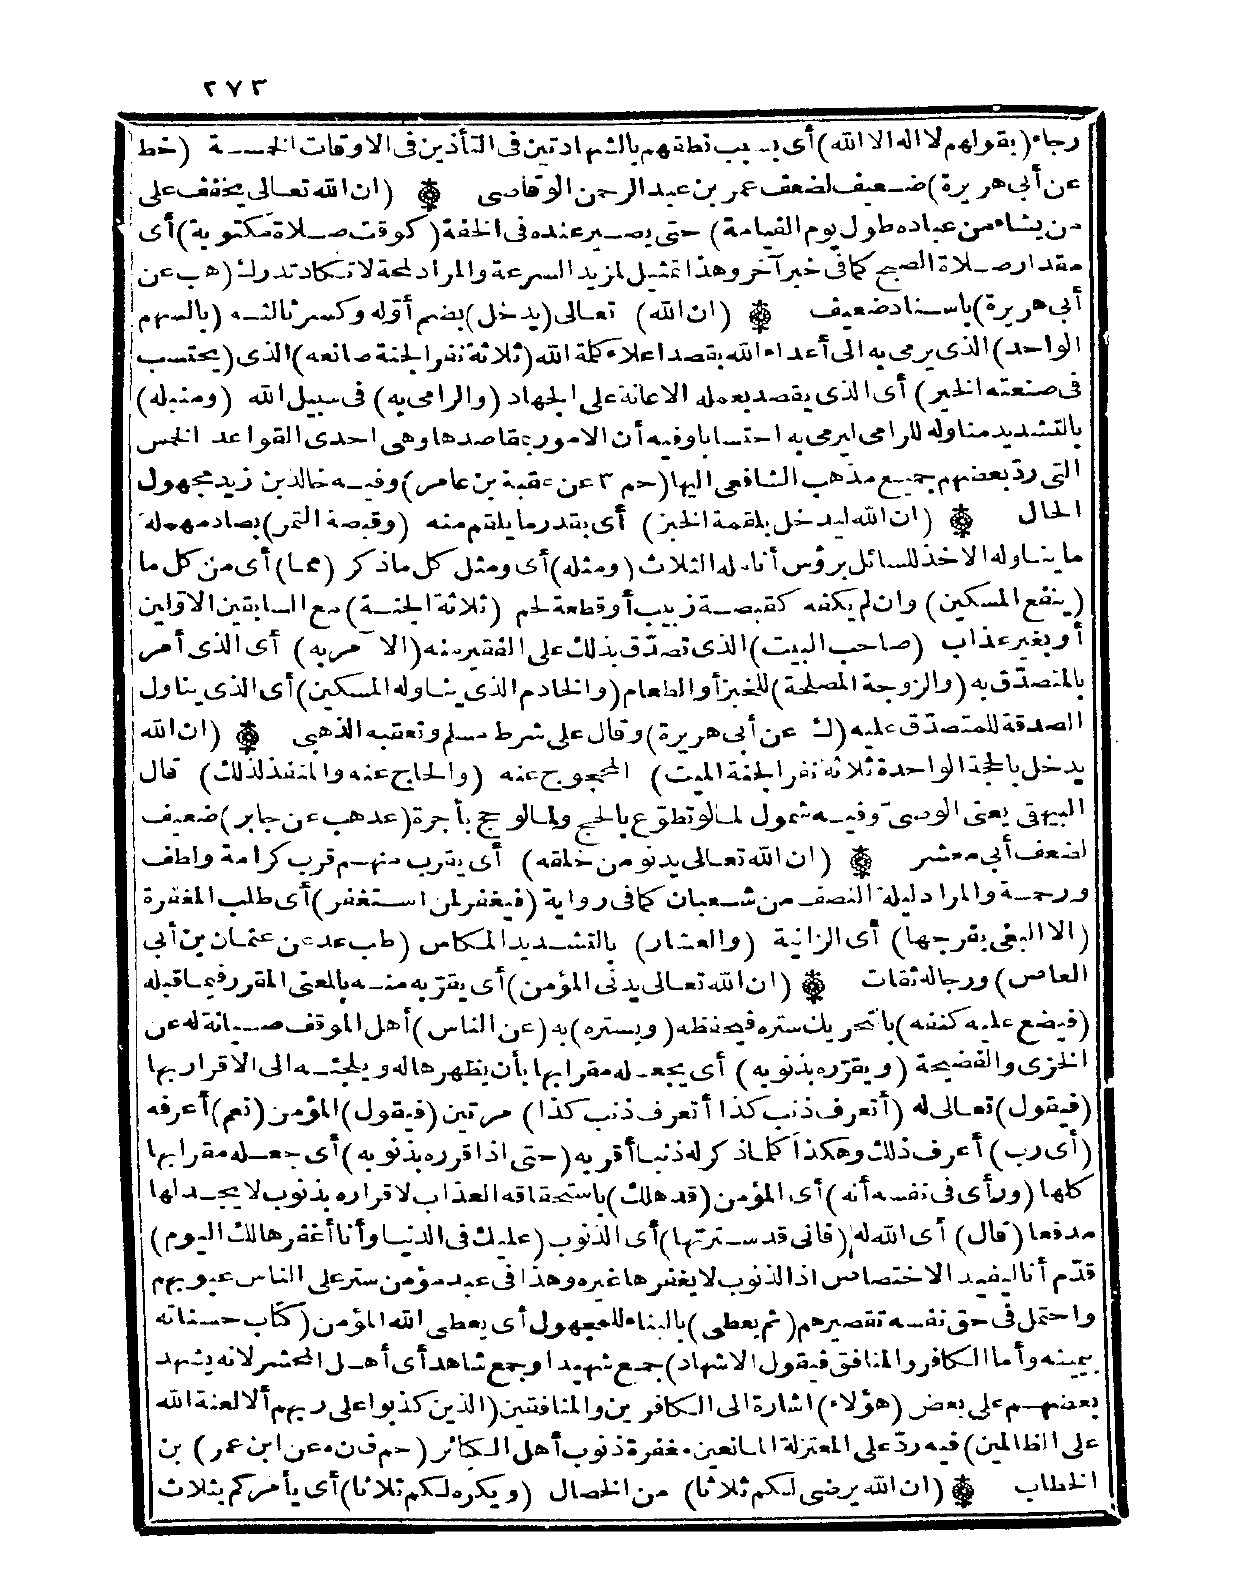 ٢٧٣
رجاء (بقولهم لا اله الا الله) أى بسبب نطقهم بالشهادتين فى التأذين فى الاوقات الخمسة (خط
عن أبى هريرة) ضعيف لضعف عمر بن عبد الرحمن الوقاصى ۞ (ان الله تعالى يخفف على
من يشاء من عباده طول يوم القيامة) حتى يصير عنده فى الخفة (كوقت صلاة مكتوبة) أى
مقدار صلاة الصبح كما فى خبر آخر وهذا تمثيل لمزيد السرعة والمراد لمحة لا تكاد تدرك (هب عن
أبى هريرة) باسناد ضعيف ۞ (ان الله) تعالى (يدخل) بضم أوله وكسر ثالثه (بالسهم
الواحد) الذى يرمى به الى أعداء الله بقصد اعلاء كلمة الله (ثلاثة نفر الجنة صانعه) الذى (يحتسب
فى صنعته الخير) أى الذى يقصد بعمله الاعانة على الجهاد (والرامى به) فى سبيل الله (ومنبله)
بالتشديد مناوله للرامى ليرمى به احتسابا وفيه أن الامور بمقاصدها وهى احدى القواعد الخمس
التى ردّ بعضهم جميع مذهب الشافعى اليها (حم ٣ عن عقبة بن عامر) وفيه خالد بن زيد مجهول
الحال ۞ (ان الله ليدخل بلقمة الخبز) أى بقدر ما يلتقم منه (وقبصة التمر) بصاد مهملة
ما يناوله الاخذ للسائل برؤس أنامله الثلاث (ومثله) أى ومثل كل ماذكر (مما) أى من كل ما
(ينفع المسكين) وان لم يكفه كقبصة زبيب أو قطعة لحم (ثلاثة الجنة) مع السابقين الاولين
أو بغير عذاب (صاحب البيت) الذى تصدّق بذلك على الفقير منه (الآمر به) أى الذى أمر
بالتصدّق به (والزوجة المصلحة) للخبز أو الطعام (والخادم الذى يناوله المسكين) أى الذى يناول
الصدقة للمتصدّق عليه (ك عن أبى هريرة) وقال على شرط مسلم وتعقبه الذهبى ۞ (ان الله
يدخل بالحجة الواحدة ثلاثة نفر الجنة الميت) المحجوج عنه (والحاج عنه والمنفذ لذلك) قال
البيهقى يعنى الوصىّ وفيه شمول لما لو تطوّع بالحج ولما لو حج بأجرة (عد هب عن جابر) ضعيف
لضعف أبى معشر ۞ (ان الله تعالى يدنو من خلقه) أى يقرب منهم قرب كرامة ولطف
ورحمة والمراد ليلة النصف من شعبان كما فى رواية (فيغفر لمن استغفر) أى طلب المغفرة
(الا البغى بفرجها) أى الزانية (والعشار) بالتشديد المكاس (طب عد عن عثمان بن أبى
العاص) ورجاله ثقات ۞ (ان الله تعالى يدنى المؤمن) أى يقرّبه منه بالمعنى المقرر فيما قبله
(فيضع عليه كنفه) بالتحريك ستره فيحفظه (ويستره) به (عن الناس) أهل الموقف صيانة له عن
الخزى والفضيحة (ويقرّره بذنوبه) أى يجعله مقرا بها بأن يظهرها له ويلجئه الى الاقرار بها
(فيقول) تعالى له (أتعرف ذنب كذا أتعرف ذنب كذا) مرتين (فيقول) المؤمن (نعم) أعرفه
(أى رب) أعرف ذلك وهكذا كلما ذكر له ذنبا أقر به (حتى اذا قرره بذنوبه) أى جعله مقرا بها
كلها (ورأى فى نفسه أنه) أى المؤمن (قد هلك) باستحقاقه العذاب لاقراره بذنوب لا يجد لها
مدفعا (قال) أى الله له (فانى قد سترتها) أى الذنوب (عليك فى الدنيا وأنا أغفرها لك اليوم)
قدّم أنا ليفيد الاختصاص اذ الذنوب لا يغفرها غيره وهذا فى عبد مؤمن ستر على الناس عيوبهم
واحتمل فى حق نفسه تقصيرهم (ثم يعطى) بالبناء للمجهول أى يعطى الله المؤمن (كتاب حسناته
بيمينه وأما الكافر والمنافق فيقول الاشهاد) جمع شهيد أو جمع شاهد أى أهل المحشر لانه يشهد
بعضهم على بعض (هؤلاء) اشارة الى الكافرين والمنافقين (الذين كذبوا على ربهم ألا لعنة الله
على الظالمين) فيه ردّ على المعتزلة المانعين مغفرة ذنوب أهل الكبائر (حم ق ن ه عن ابن عمر) بن
الخطاب ۞ (ان الله يرضى لكم ثلاثا) من الخصال (ويكره لكم ثلاثا) أى يأمركم بثلاث